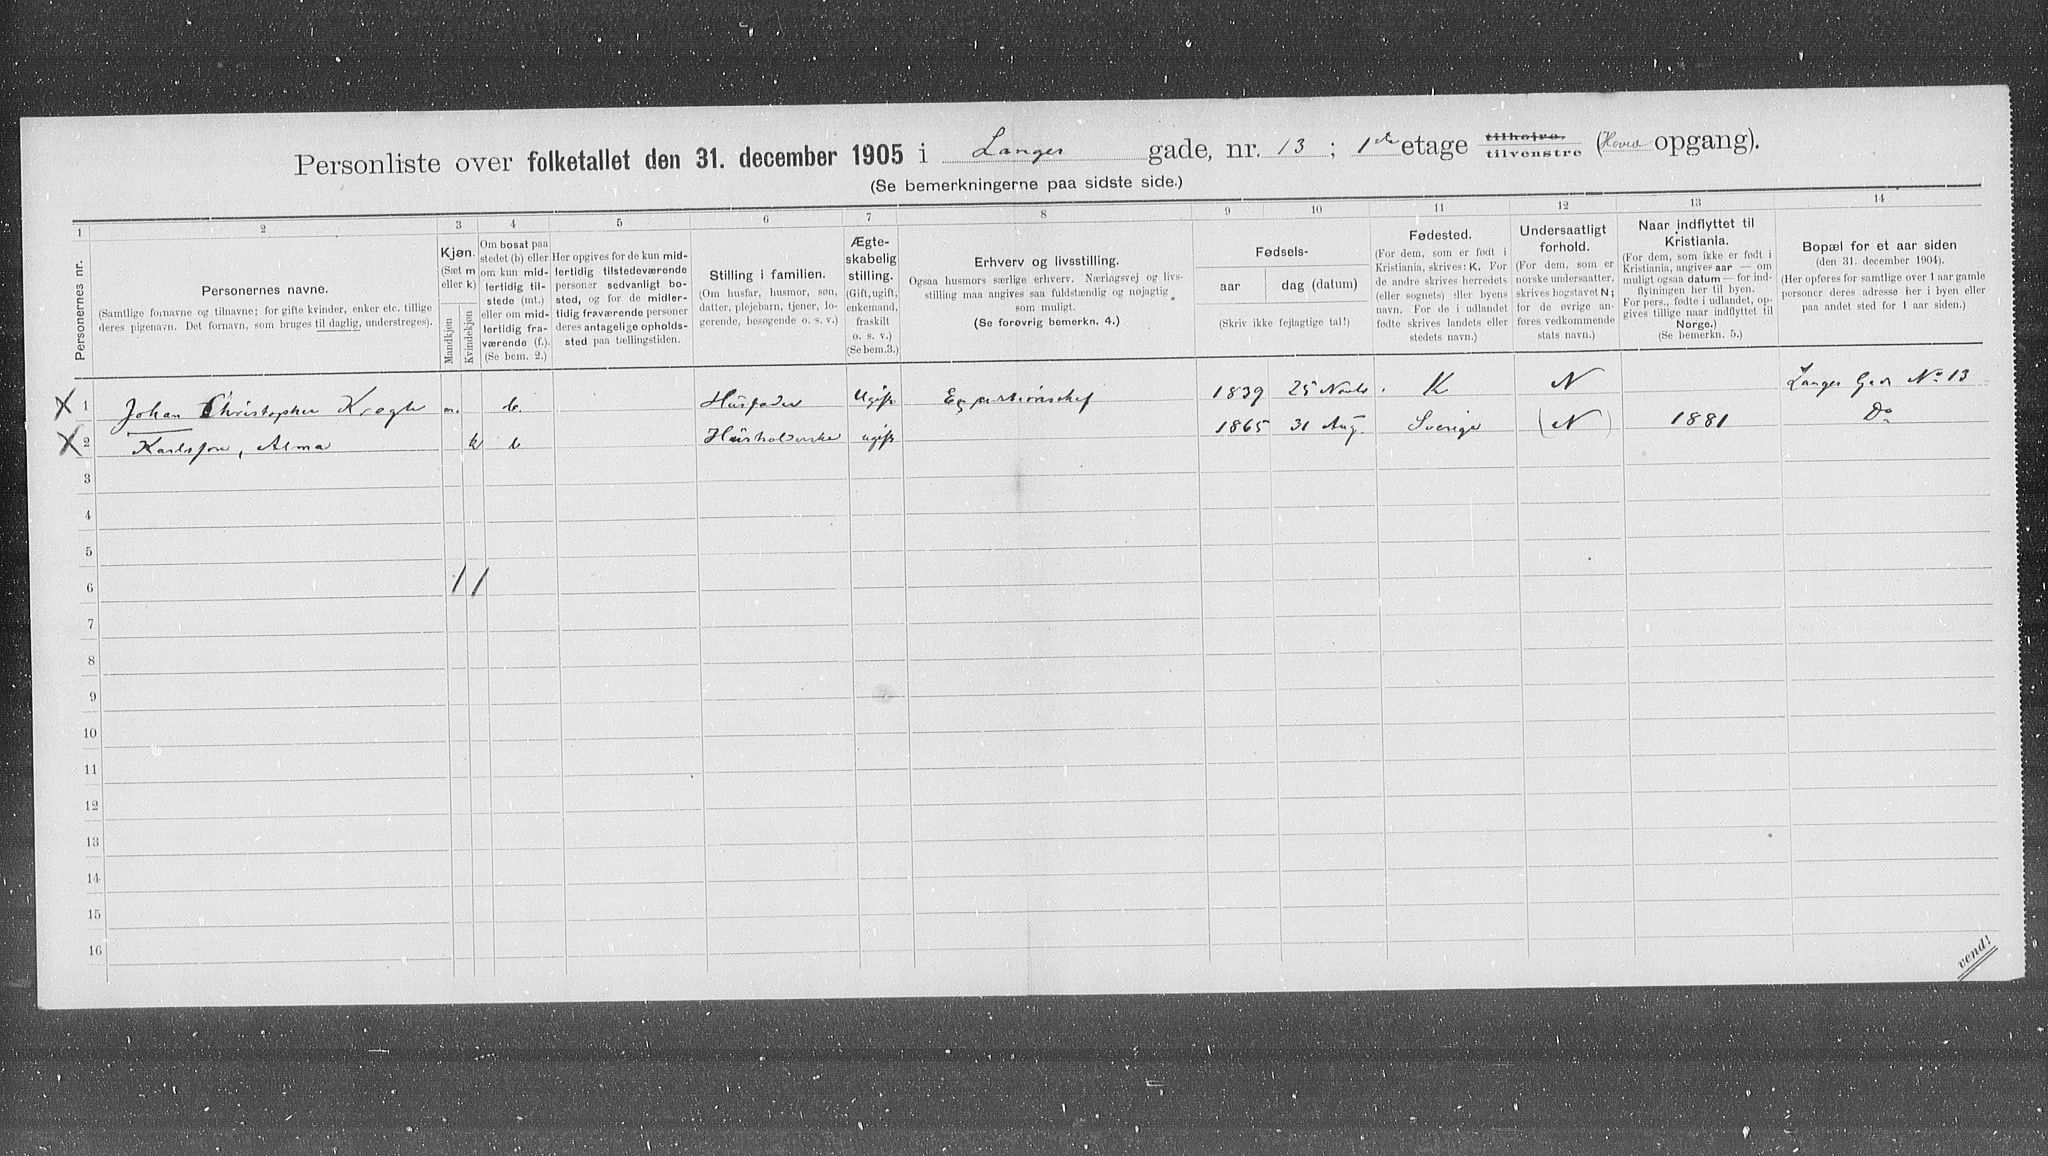 Personliste over folketallet den 31. december 1905 i Langes gade, nr. 13; 1ste etage tilhøire. tilvenstre (Hoved opgang).
(Se bemerkningerne paa sidste side.)
1 2 3 4 5 6 7 8 9 10 11 12 13 14
Personernes nr.
Personernes navne.
(Samtlige fornavne og tilnavne; for gifte kvinder, enker etc. tillige
deres pigenavn. Det fornavn, som bruges til daglig, understreges).
Kjøn.
(Sæt m
eller k)
Mandkjøn
Kvindekjøn
Om bosat paa
stedet (b) eller
om kun mid-
lertidig til-
stede (mt.)
eller om mid-
lertidig fra-
værende (f.).
(Se bem. 2.)
Her opgives for de kun mid-
lertidig tilstedeværende
personer sedvanligt bo-
sted, og for de midler-
tidig fraværende personer
deres antagelige opholds-
sted paa tællingstiden.
Stilling i familien.
(Om husfar, husmor, søn,
datter, plejebarn, tjener, lo-
gerende, besøgende o. s. v.)
Ægte-
skabelig
stilling.
(Gift, ugift,
enkemand,
fraskilt
o. s. v.)
(Se bem.3.)
Erhverv og livsstilling.
Ogsaa husmors særlige erhverv. Næringsvej og livs-
stilling maa angives saa fuldstændig og nøjagtig
som muligt.
(Se forøvrig bemerkn. 4.)
Fødsels-
aar
dag (datum)
(Skriv ikke fejlagtige tal!)
Fødested.
(For dem, som er født i
Kristiania, skrives: K. For
de andre skrives herredets
(eller sognets) eller byens
navn. For de i udlandet
fødte skrives landets eller
stedets navn.)
Undersaatligt
forhold.
(For dem, som er
norske undersaatter,
skrives bogstavet N;
for de øvrige an-
føres vedkommende
stats navn.)
Naar indflyttet til
Kristiania.
(For dem, som ikke er født i
Kristiania, angives aar — om
muligt ogsaa datum — for ind-
flytningen her til byen.
For pers., fødte i udlandet, op-
gives tillige naar indflyttet til
Norge.)
(Se bemerkn. 5.)
Bopæl for et aar siden
(den 31. december 1904).
(Her opføres for samtlige over 1 aar gamle
personer deres adresse her i byen eller
paa andet sted for 1 aar siden.)
X 1 Johan Christopher Krogh m. b. Husfader Ugift Expeditionschef 1839 25 Novb. K N Langes Gade No 13
X 2 Karlsson, Alma k b Husholderske ugift 1865 31 Aug. Sverige (N) 1881 Do
3
4
5
6 1 1
7
8
9
10
11
12
13
14
15
16
vend!